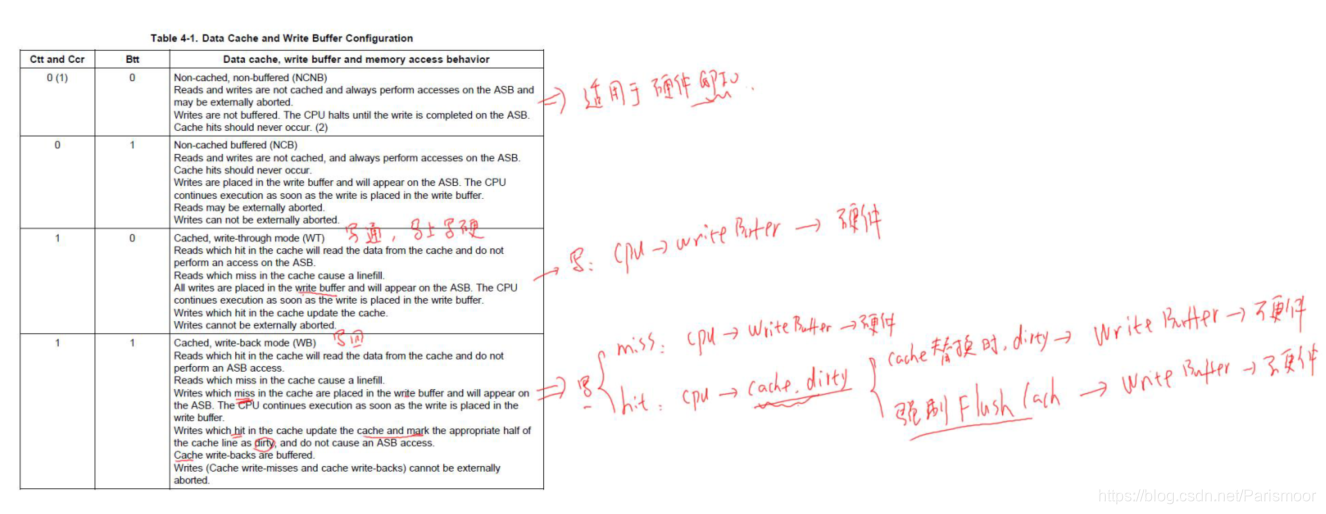 Table 4-1. Data Cache and Write Buffer Configuration
Ctt and Ccr Btt Data cache, write buffer and memory access behavior
0 (1) 0 Non-cached, non-buffered (NCNB)
Reads and writes are not cached and always perform accesses on the ASB and
may be externally aborted.
Writes are not buffered. The CPU halts until the write is completed on the ASB.
Cache hits should never occur. (2)
=> 适用于硬件
0 1 Non-cached buffered (NCB)
Reads and writes are not cached, and always perform accesses on the ASB.
Cache hits should never occur.
Writes are placed in the write buffer and will appear on the ASB. The CPU
continues execution as soon as the write is placed in the write buffer.
Reads may be externally aborted.
Writes can not be externally aborted.
1 0 Cached, write-through mode (WT) 写通，马上写硬
Reads which hit in the cache will read the data from the cache and do not
perform an access on the ASB.
Reads which miss in the cache cause a linefill.
All writes are placed in the write buffer and will appear on the ASB. The CPU
continues execution as soon as the write is placed in the write buffer.
Writes which hit in the cache update the cache.
Writes cannot be externally aborted.
→ 写: cpu → write Buffer → 硬件
1 1 Cached, write-back mode (WB) 写回
Reads which hit in the cache will read the data from the cache and do not
perform an ASB access.
Reads which miss in the cache cause a linefill.
Writes which miss in the cache are placed in the write buffer and will appear on
the ASB. The CPU continues execution as soon as the write is placed in the
write buffer.
Writes which hit in the cache update the cache and mark the appropriate half of
the cache line as dirty, and do not cause an ASB access.
Cache write-backs are buffered.
Writes (Cache write-misses and cache write-backs) cannot be externally
aborted.
=> 写
miss: cpu → write Buffer → 硬件
hit: cpu → cache. dirty
cache替换时, dirty → Write Buffer → 硬件
强刷 Flush Cach → Write Buffer → 硬件
https://blog.csdn.net/Parismoor